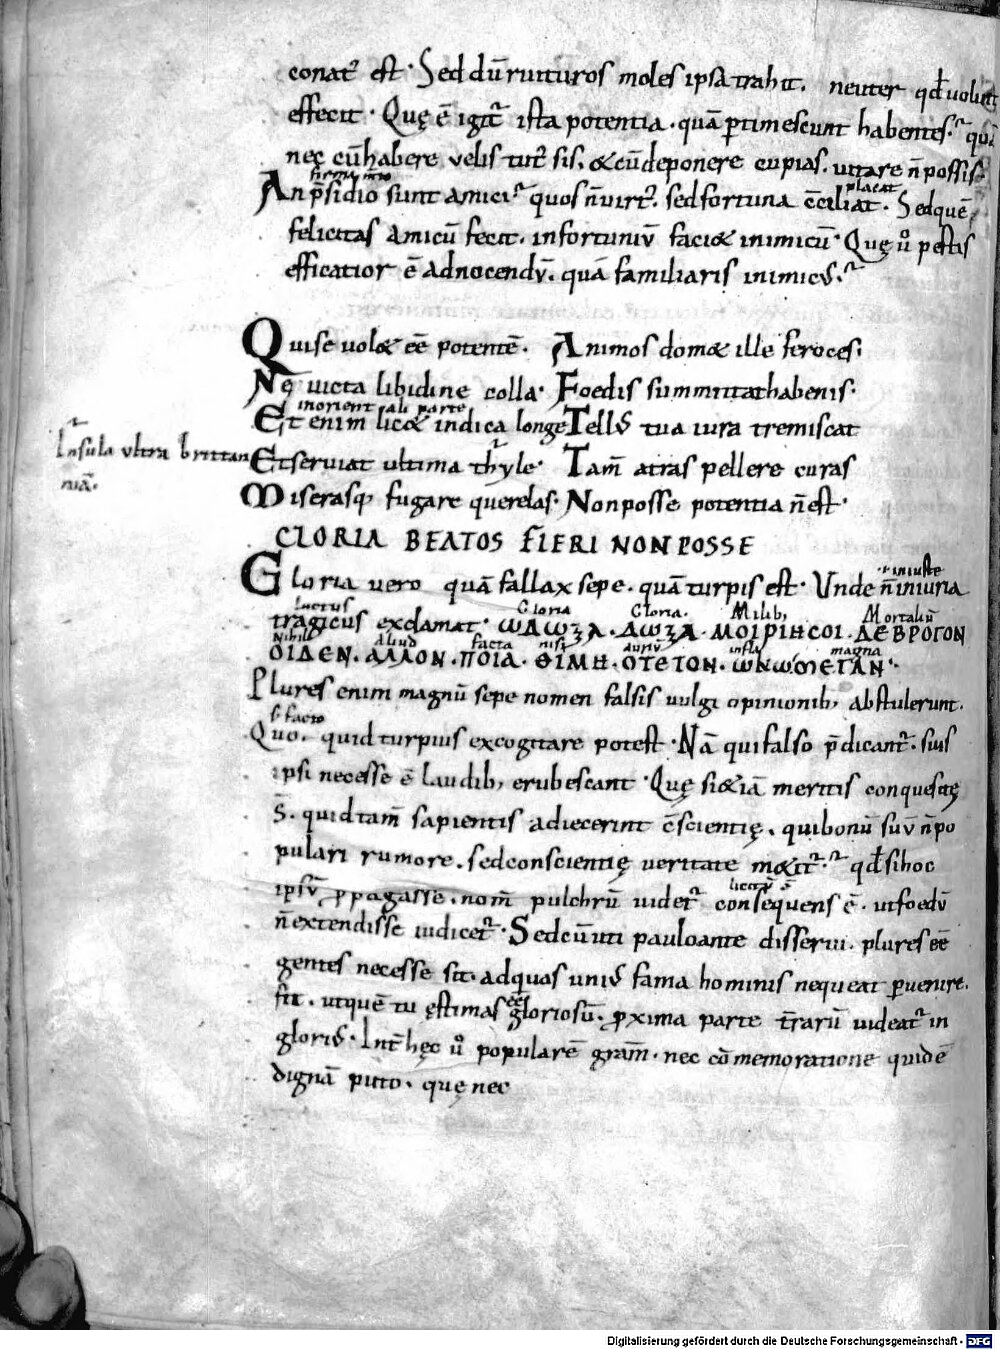 conat᷑ est · Sed dū ruituros moles ipsa trahit . neuter qđ uoluit
effecit · Quę ē igit᷑ ista potentia . quā ptimescunt habentes .
nec cū habere velis tut᷑ sis . & cū deponere cupias . uitare n̄ possis .
firmamto placat
An p̄sidio sunt amici quos n̄ uirt᷑ . sed fortuna c̄ciliat . Sed quē
felicitas amicū fecit . infortuniū faci& inimicū · Quę u͛o pestis
efficatior ē ad nocendū . quā familiaris inimicus .
Qui se uol& eē potentē . Animos dom& ille feroces .
Nec uicta libidine colla · Foedis summittat habenis .
in orientali parte
Et enim lic& indica longe Tellus tua iura tremiscat
Insula ultra brittan
niā .
Et seruiat ultima thyle · Tam̄ atras pellere curas
Miserasq; fugare querelas . Non posse potentia n̄ est .
GLORIA BEATOS FIERI NON POSSE
iniuste
Gloria uero quā fallax sepe . quā turpis est · Unde n̄ iniuria
luctus Gloria Gloria . Milib; Mortaliū
tragicus exclamat · ωΔωξΑ . ΔωξΑ . ΜΟΙΡΙΗCΟΙ . ΔΕΒΡΟΓΟΝ
Nihil aliud facta nisi auriū infla magna
ΟΙΔΕΝ . ΑΛΛΟΝ . ΠΟΙΑ . ΘΙΜΗ . ΟΤΕΤΟΝ . ωΝωΜΕΓΑΝ ·
Plures enim magnū sepe nomen falsis uulgi opinionib; abstulerunt .
s facto
Quo . quid turpius excogitare potest · Nā qui falso p̄dicant᷑ . suis
ipsi necesse ē laudib; erubescant · Quę si &iā meritis conquesitę
s̄ . quid tam̄ sapientis adiecerint c̄scientię . qui bonū suū n̄ po
pulari rumore . sed conscientię ueritate m&it᷑ . qđ si hoc
ipsū ꝓpagasse . nom̄ pulchrū uidet᷑ consequens ē . ut foedū
n̄ extendisse iudicet᷑ · Sed cū uti paulo ante disserui . plures eē
gentes necesse sit . ad quas unius fama hominis nequeat puenire .
eē
fit . ut quē tu ęstimas gloriosū . ꝓxima parte t̄rarū uideat᷑ in
glorius · Int̄ hęc u͛o popularē gram̄ . nec cōmemoratione quidē
dignā puto . quę nec
Digitalisierung gefördert durch die Deutsche Forschungsgemeinschaft - DFG